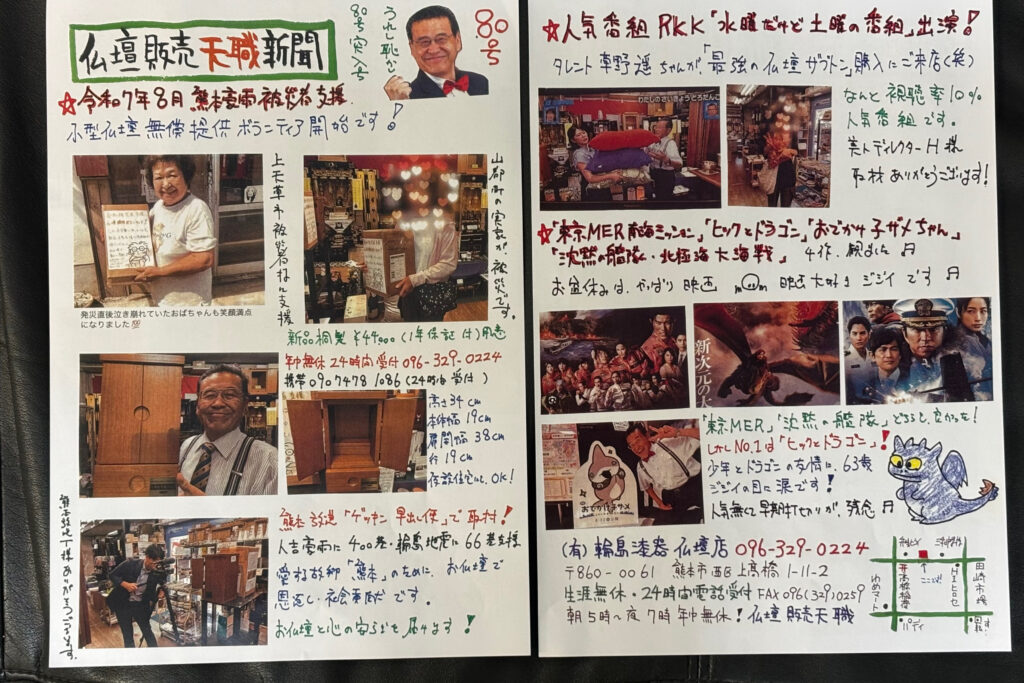 仏壇販売天職新聞
80号突入号
うれし恥かし
80号
☆令和7年8月 熊本豪雨被災者支援
小型仏壇無償提供ボランティア開始です!
上天草市被災者様に支援
山都町の実家が、被災です。
発災直後泣き崩れていたおばちゃんも笑顔満点
になりました
新品桐製 ¥44,900(1年保証付)用意
年中無休24時間受付096-329-0224
携帯09074781086(24時間受付)
高さ34cm
本体幅19cm
扉開幅38cm
行19cm
仮設住宅にも、OK!
熊本放送「ゲツキン早出し便」で取材!
人吉豪雨に400基・輪島地震に66基支援
愛する故郷「熊本」のために、お仏壇で
恩返し・社会奉仕です。
お仏壇と心の安らぎを届けます!
様ありがとうございます。
☆人気番組RKK「水曜だけど土曜の番組」出演!
タレント草野遥ちゃんが、「最強の仏壇ザブトン」購入にご来店(笑)
わたしのさいきょうどろだんご
なんと視聴率10%
人気番組です。
美人ディレクターH様
取材ありがとうございます!
☆「東京MER南海ミッション」「ヒックとドラゴン」「おでかけ子ザメちゃん」
「沈黙の艦隊・北極海大海戦」 4作、観ました
お盆休みは、やっぱり映画 映画大好きジジイです
新次元の
おでかけ子ザメ
「東京MER」「沈黙の艦隊」どちらも、良かった!
しかしNO.1は「ヒックとドラゴン」!
少年とドラゴンの友情に、63歳
ジジイの目に涙です!
人気無くて早期打ち切りが、残念
(有)輪島漆器仏壇店 096-329-0224
〒860-0061 熊本市西区上高橋1-11-2
生涯無休・24時間電話受付 FAX096(329)0259
朝5時〜夜7時年中無休!仏壇販売天職
高橋稲荷
ゆめマート
ここだよ
田崎市場